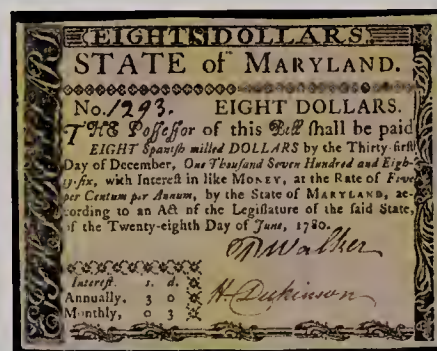 EIGHTS DOLLARS.
STATE of MARYLAND.
No. 1293. EIGHT DOLLARS.
THE Poſſeſſor of this Bill ſhall be paid
EIGHT Spaniſh milled DOLLARS by the Thirty-firſt
Day of December, One Thouſand Seven Hundred and Eigh-
ty-ſix, with Intereſt in like MONEY, at the Rate of Five
per Centum per Annum, by the State of MARYLAND, ac-
cording to an Act of the Legiſlature of the ſaid State,
of the Twenty-eighth Day of June, 1780.
Walker
Intereſt. s. d.
Annually, 3 0
H. Dickinson
Monthly, 0 3